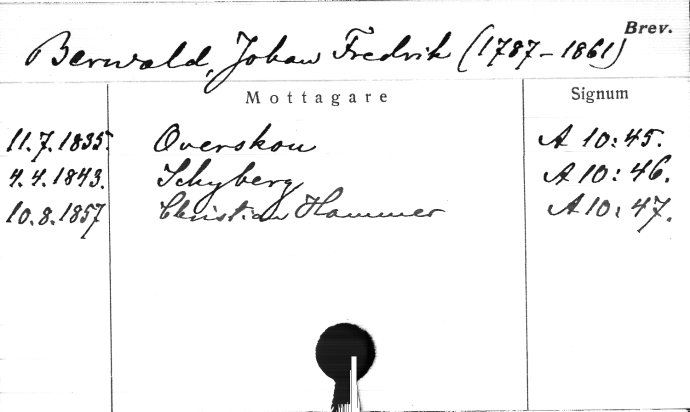 Brev.
Berwald, Johan Fredrik (1787-1861)
Mottagare Signum
11.7.1835. Overskou A 10:45.
4.4.1843. Schyberg A 10:46.
10.8.1857 Christian Hammer A 10:47.